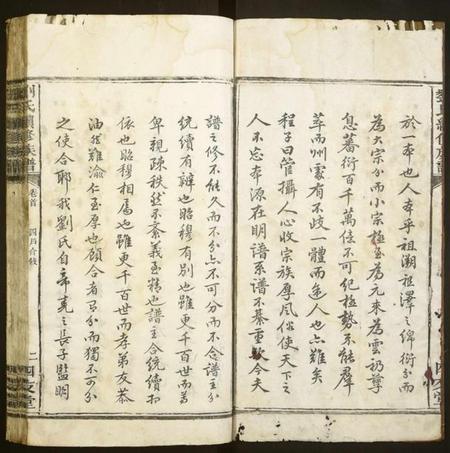 於一本也人本乎祖溯祖澤之綿衍分而
為大宗分而小宗極至為元来為雲礽摹
息蕃衍百千萬億不可紀極勢不能羣
萃而州處有不歧一體而途人也亦難矣
程子曰管攝人心收宗族厚風俗使天下之
人不忘本源在明譜系譜不綦重歟今夫
譜之修不能久而不分亦不可分而不合譜之主
統續有辨也昭穆有別也雖更千百世而為
卑視疎秩然不紊義至精也譜主合統續相
依也昭穆相屬也雖更千百世而孝弟友恭
油然難渝仁至厚也顧合者易分而獨不可分
之使合耶我劉氏自帝堯之長子監明
劉氏續修族譜
卷首
四戶合修
二
四友堂